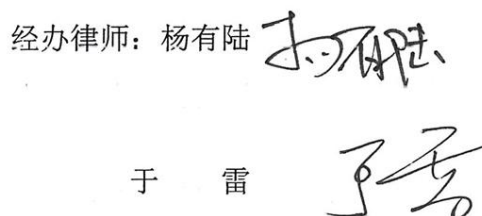 经办律师：杨有陆 杨有陆
于 雷 于雷